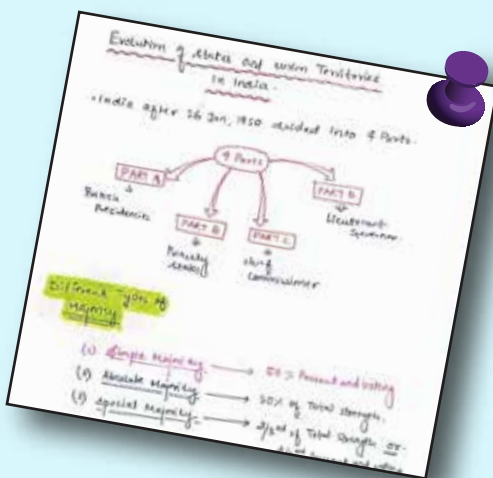 Evolution of States and Union Territories
in India.
India after 26 Jan, 1950 divided into 4 Parts.
4 Parts
PART A
British
Presidencies
PART B
Princely
States
PART C
Chief
Commissioner
PART D
Lieutenant
Governor
Different Types of
Majority
(1) Simple Majority → 50% Present and voting
(2) Absolute Majority → 50% of Total strength.
(3) Special Majority → 2/3rd of Total Strength or
present and voting